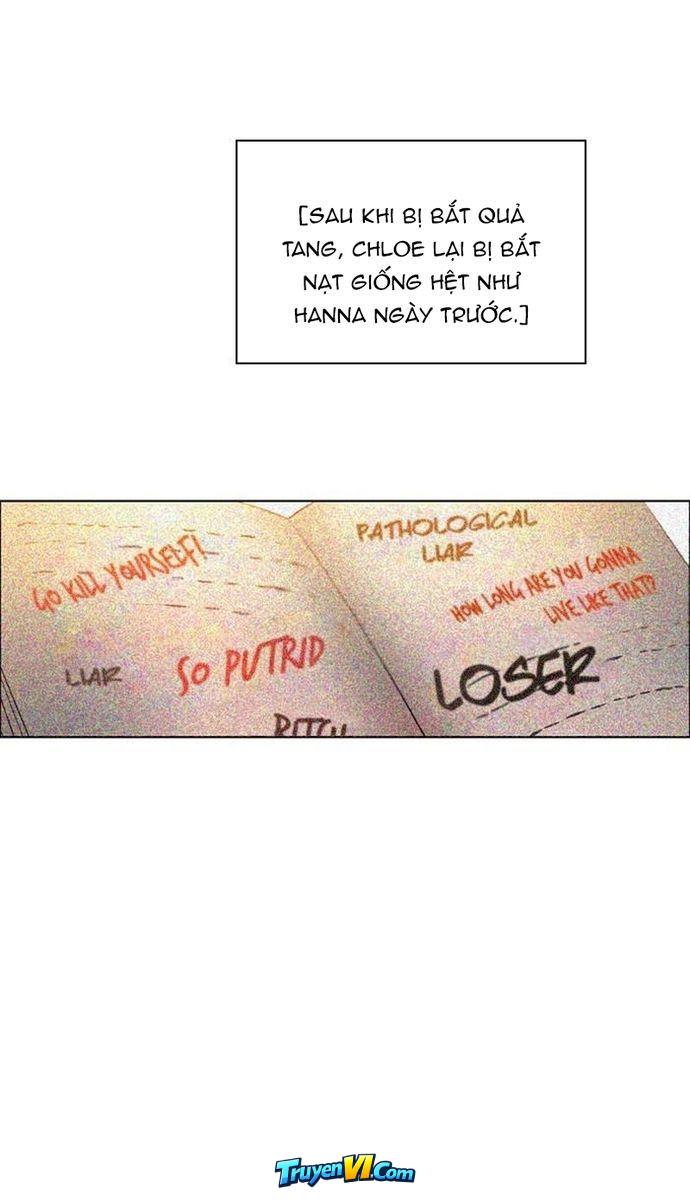 [SAU KHI BỊ BẮT QUẢ
TANG, CHLOE LẠI BỊ BẮT
NẠT GIỐNG HỆT NHƯ
HANNA NGÀY TRƯỚC.]
GO KILL YOURSELF!
LIAR
SO PUTRID
BITCH
PATHOLOGICAL
LIAR
HOW LONG ARE YOU GONNA
LIVE LIKE THAT?
LOSER
TruyenVI.Com